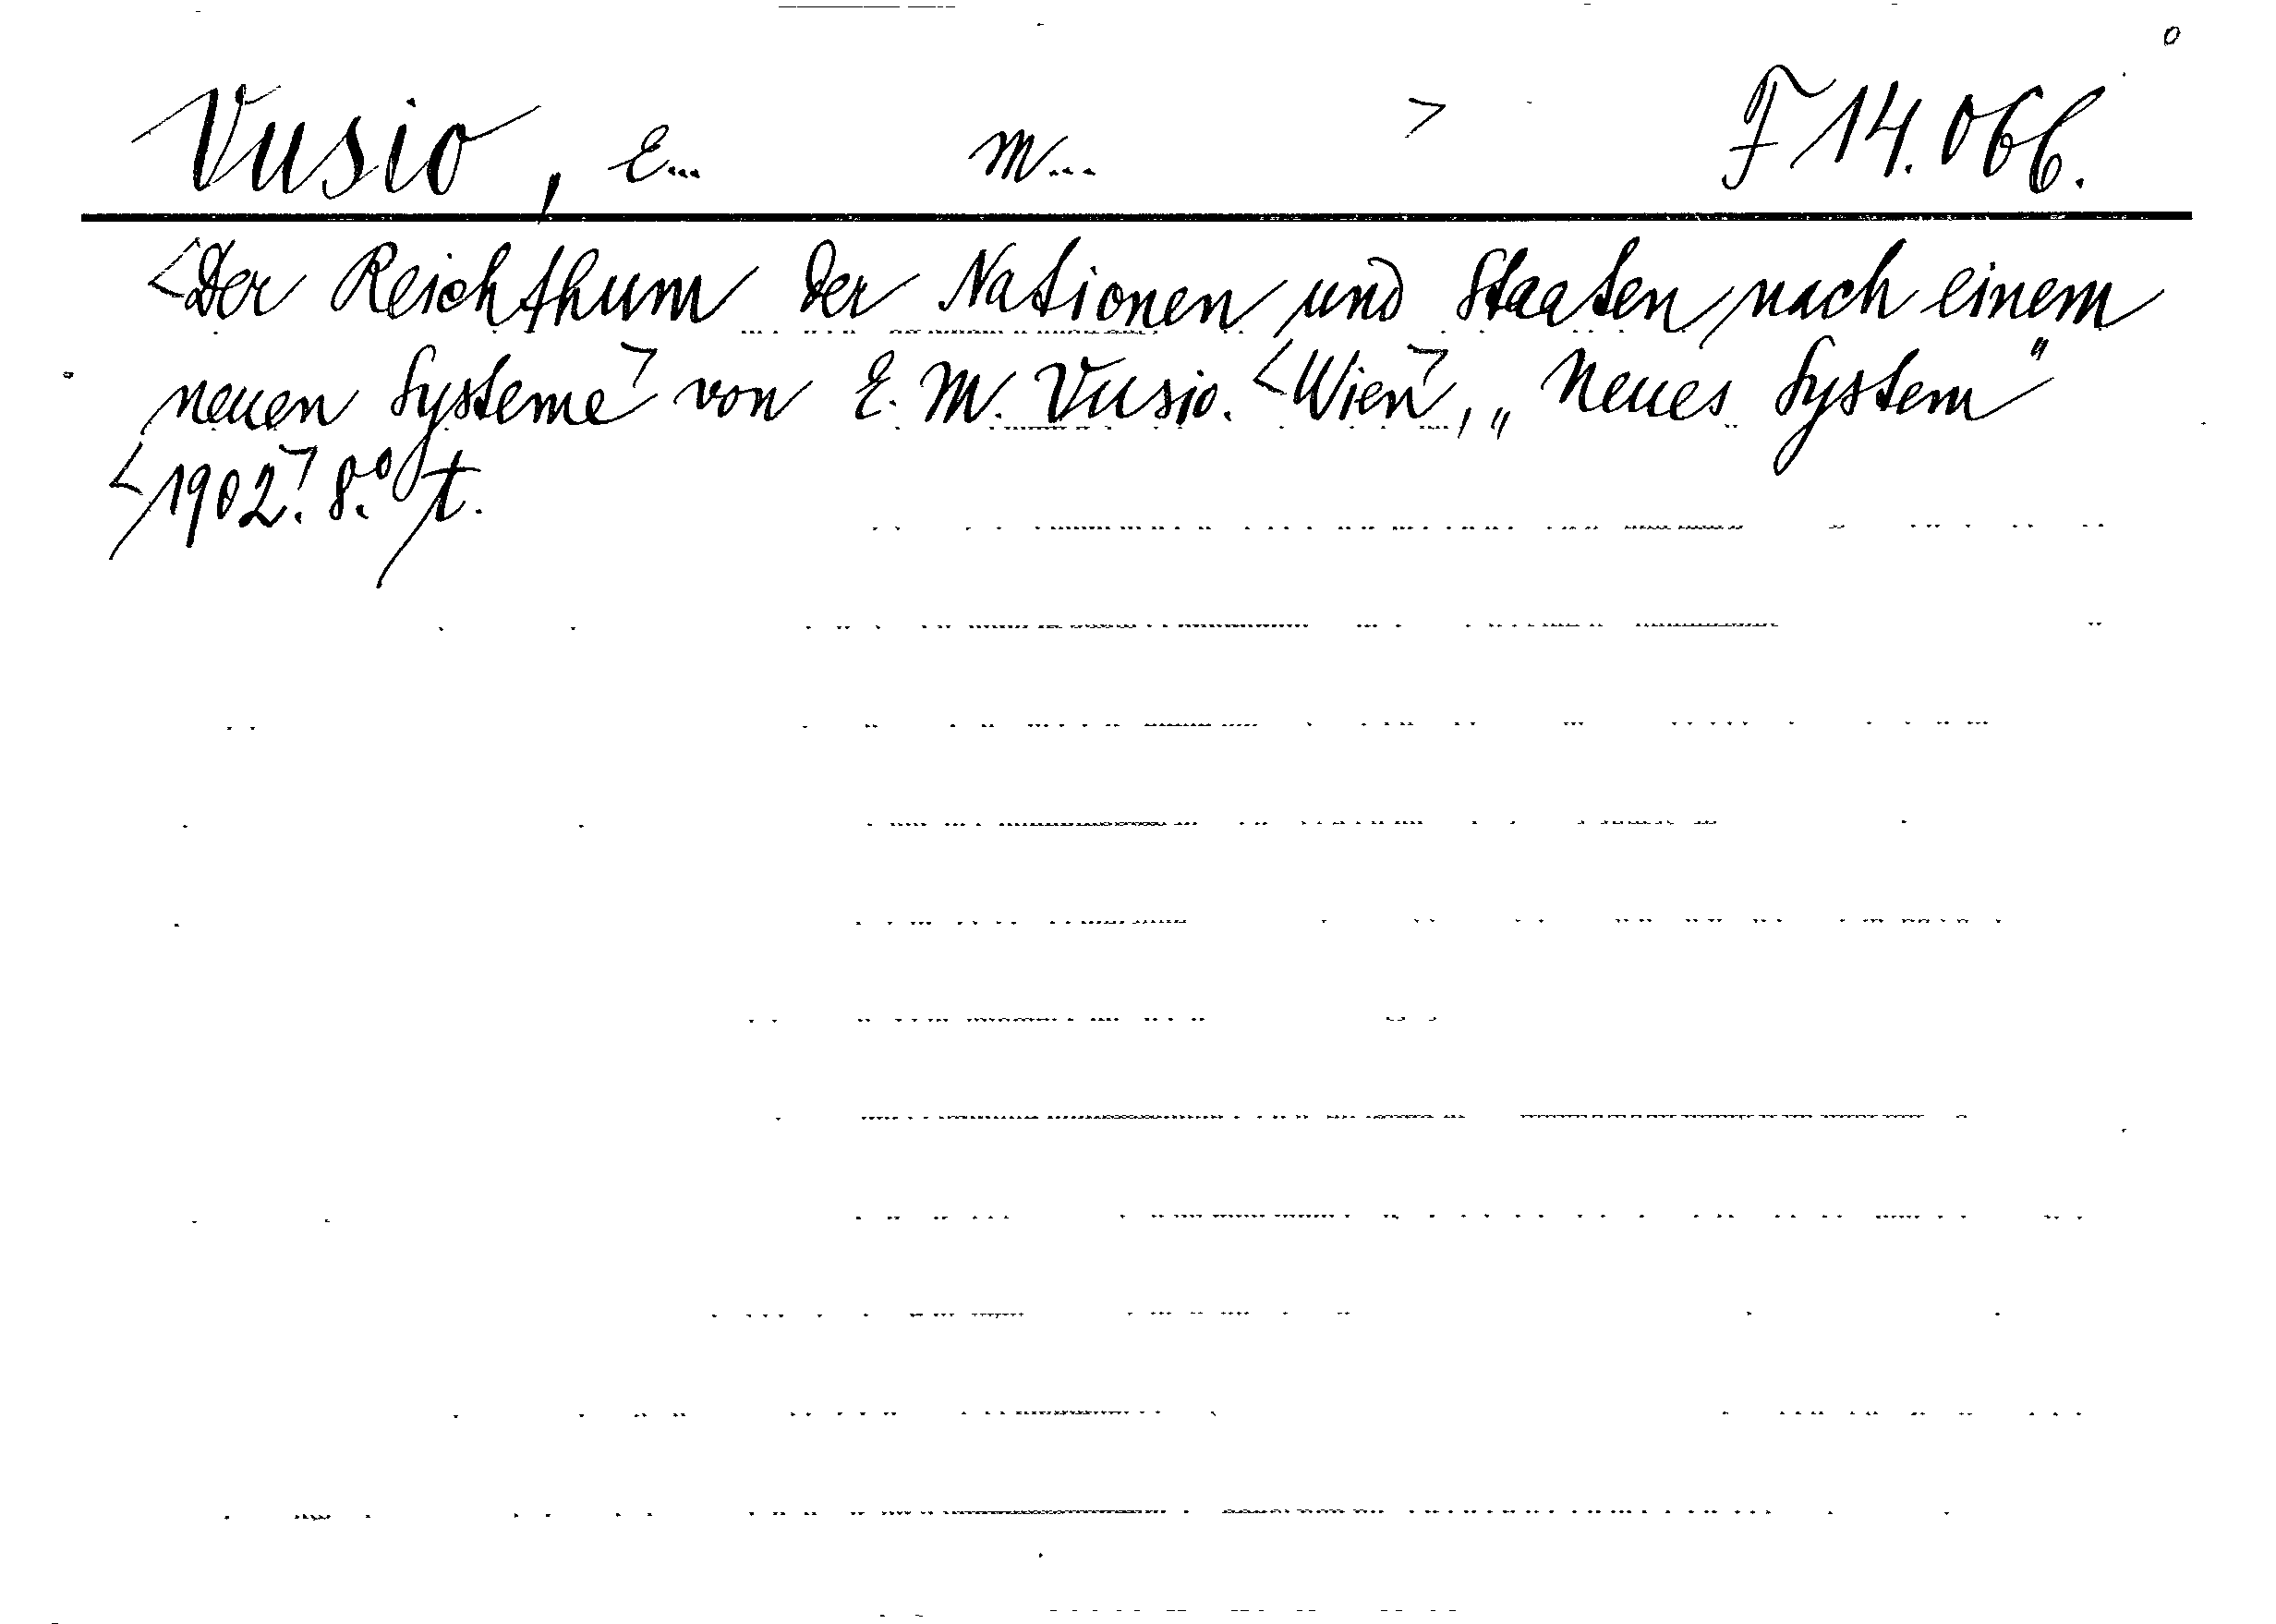 Vusio, E... M... > F 14.066.
<Der Reichthum der Nationen und Staaten nach einem
neuen Systeme> von E. M. Vusio. <Wien>, „Neues System"
<1902.> 8.° t.